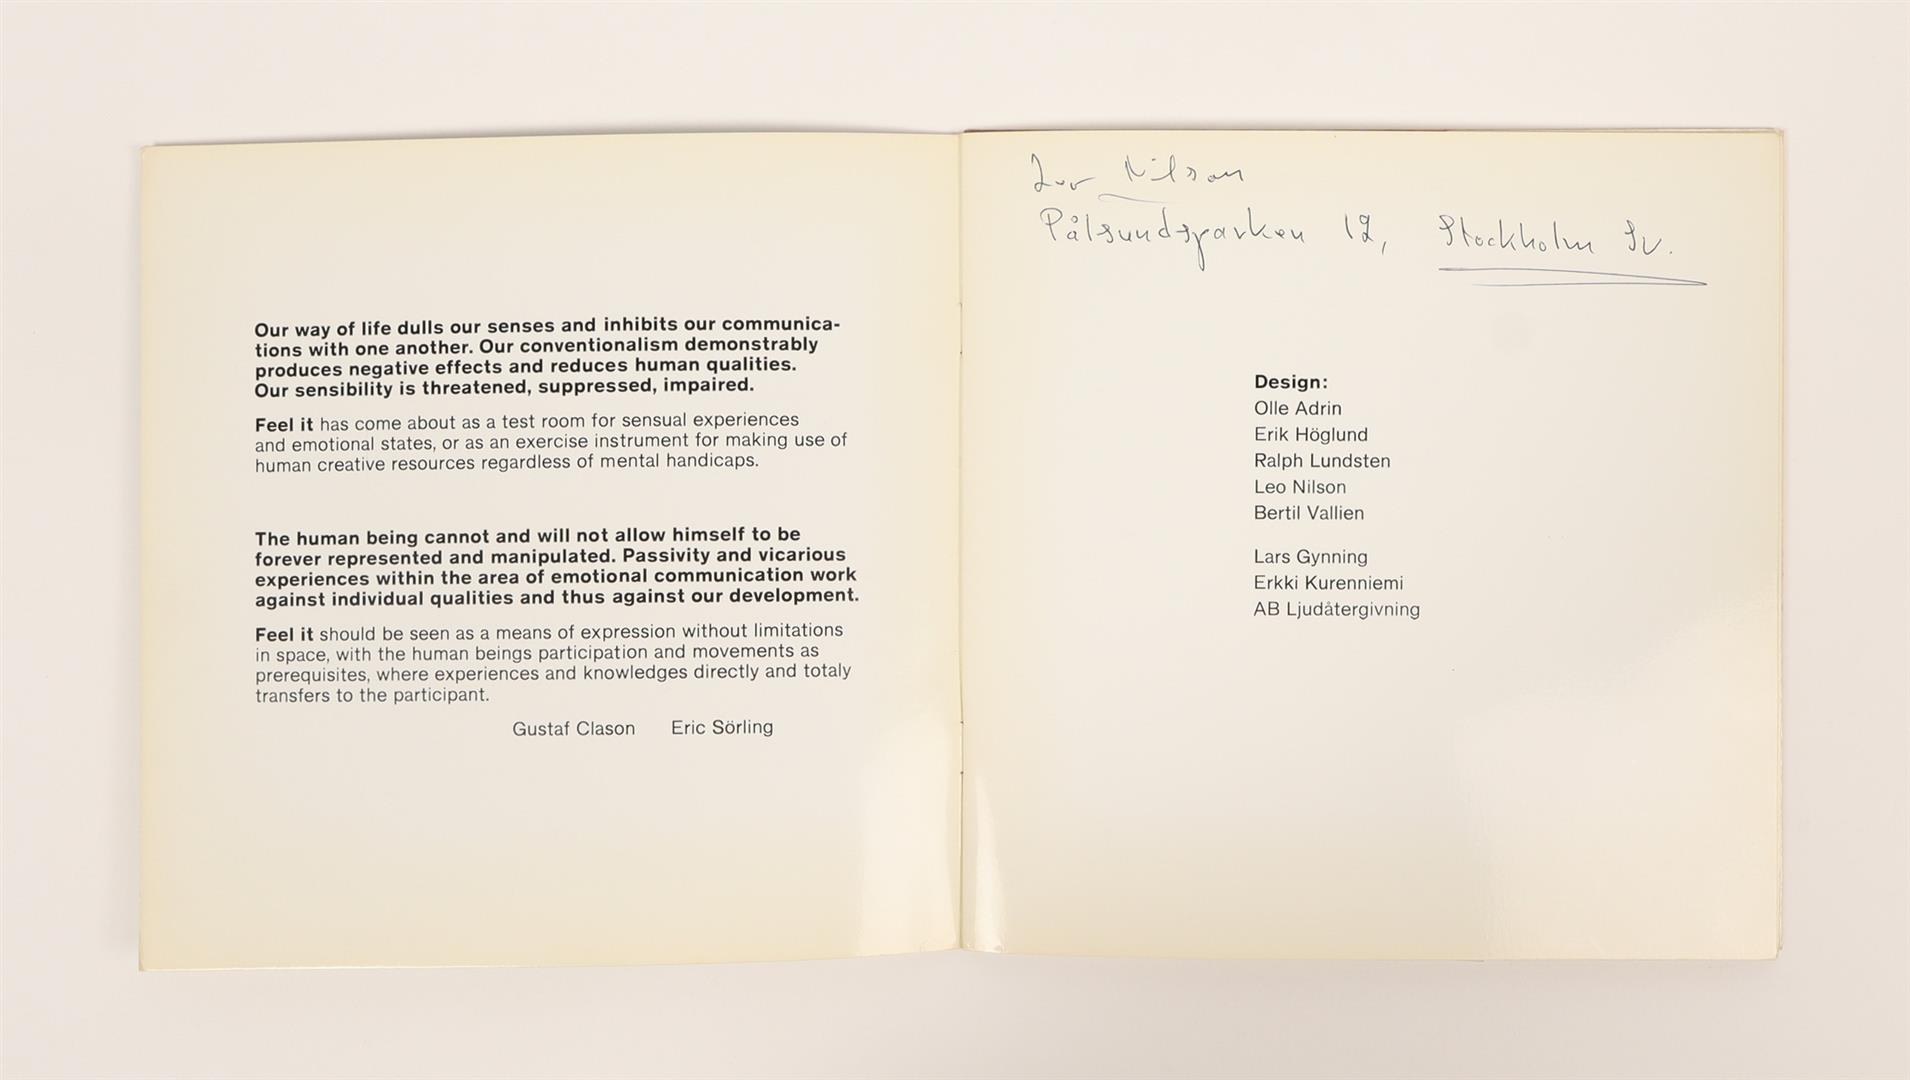 Our way of life dulls our senses and inhibits our communica-
tions with one another. Our conventionalism demonstrably
produces negative effects and reduces human qualities.
Our sensibility is threatened, suppressed, impaired.
Feel it has come about as a test room for sensual experiences
and emotional states, or as an exercise instrument for making use of
human creative resources regardless of mental handicaps.
The human being cannot and will not allow himself to be
forever represented and manipulated. Passivity and vicarious
experiences within the area of emotional communication work
against individual qualities and thus against our development.
Feel it should be seen as a means of expression without limitations
in space, with the human beings participation and movements as
prerequisites, where experiences and knowledges directly and totaly
transfers to the participant.
Gustaf Clason Eric Sörling
Nilson
Pålsundsparken 12, Stockholm Sv.
Design:
Olle Adrin
Erik Höglund
Ralph Lundsten
Leo Nilson
Bertil Vallien
Lars Gynning
Erkki Kurenniemi
AB Ljudåtergivning